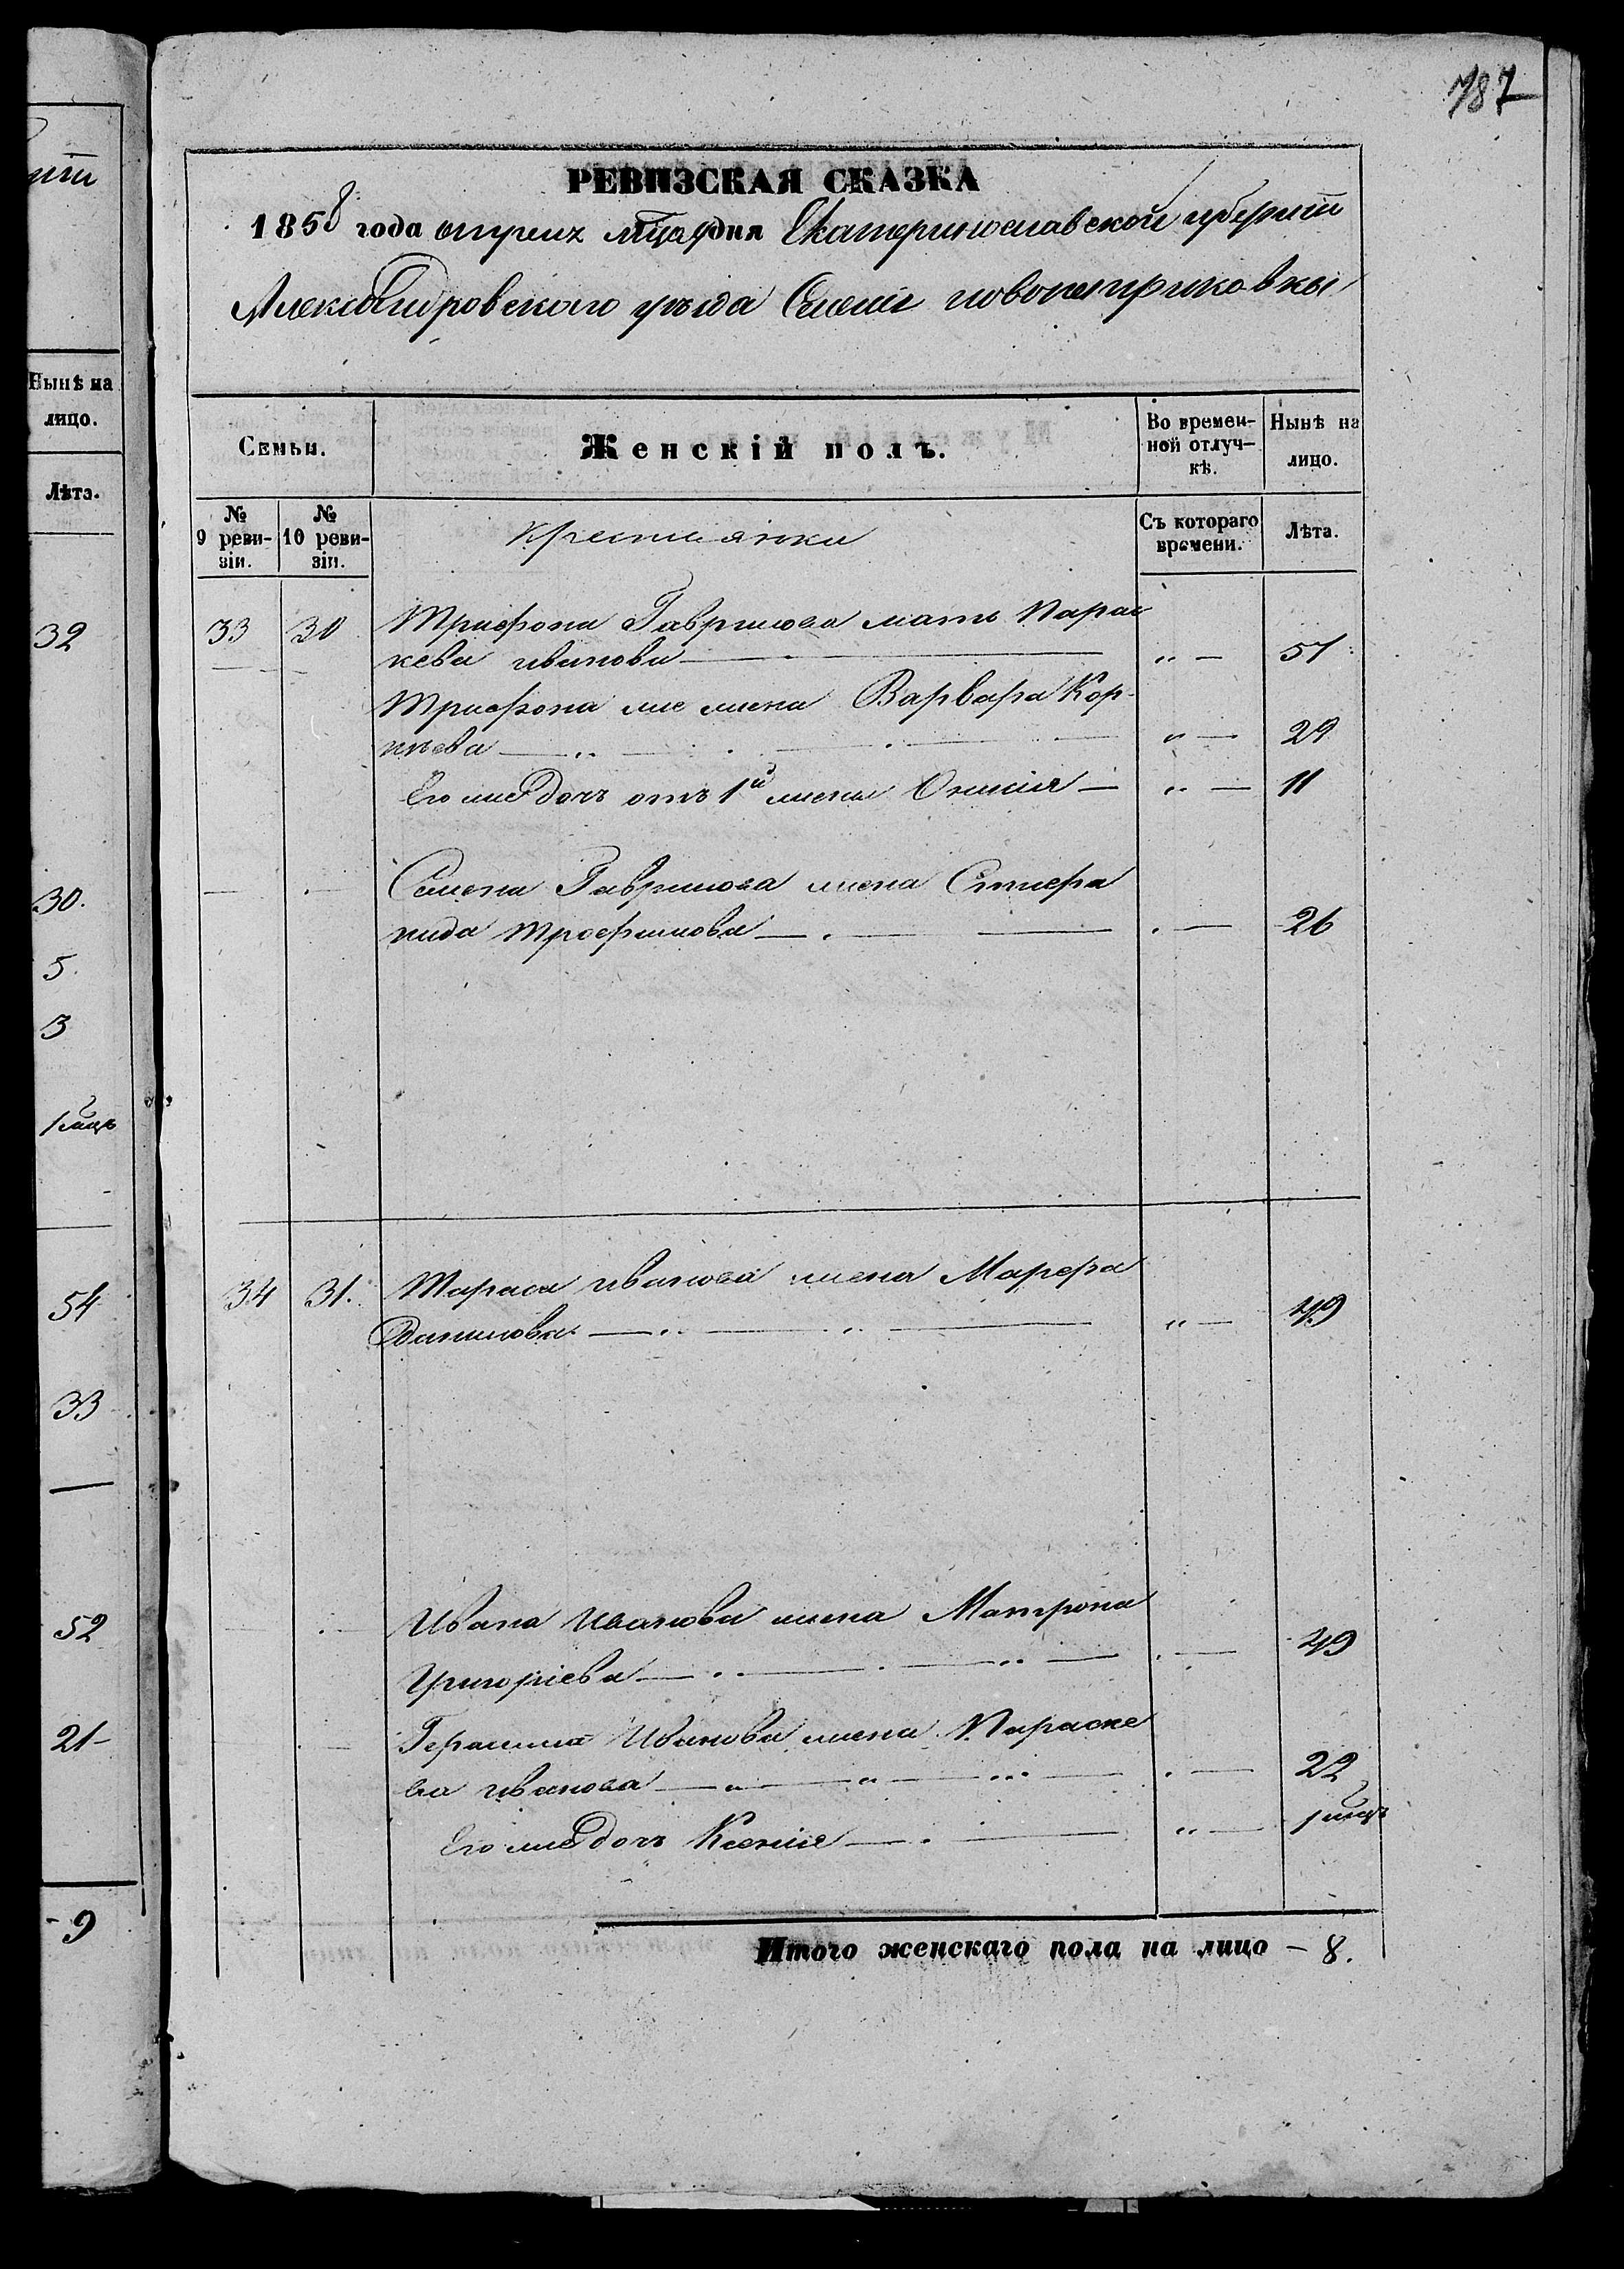 787
РЕВИЗСКАЯ СКАЗКА
1858 года апреля мца дня Екатеринославской губерніи
Александровского уезда Селеніе новопетриковкы
Нынѣ на
лицо.
Лѣта.
32
30.
5.
3
54
33
52
21
9
Семьи.
Женскій полъ.
Во времен-
ной отлуч-
кѣ.
Нынѣ на
лицо.
№
9 реви-
зіи.
№
10 реви-
зіи.
Крестьянки
Съ котораго
времени.
Лѣта.
33 30 Трифона Гаврилова мать Парас
кева иванова 51
Трифона жена Варвара Кор-
нѣева 29
Его же дочь отъ 1й жены Онисія 11
Семена Гаврилова жена Степа
нида трофимова 26
34 31. Тараса иванова жена Марфа
Данилова 49
Ивана Иванова жена Матрона
Григоріева 49
Герасима Иванова жена Параске
ва иванова 22
Его же дочь Ксенія 1 мцъ
Итого женскаго пола на лицо - 8.